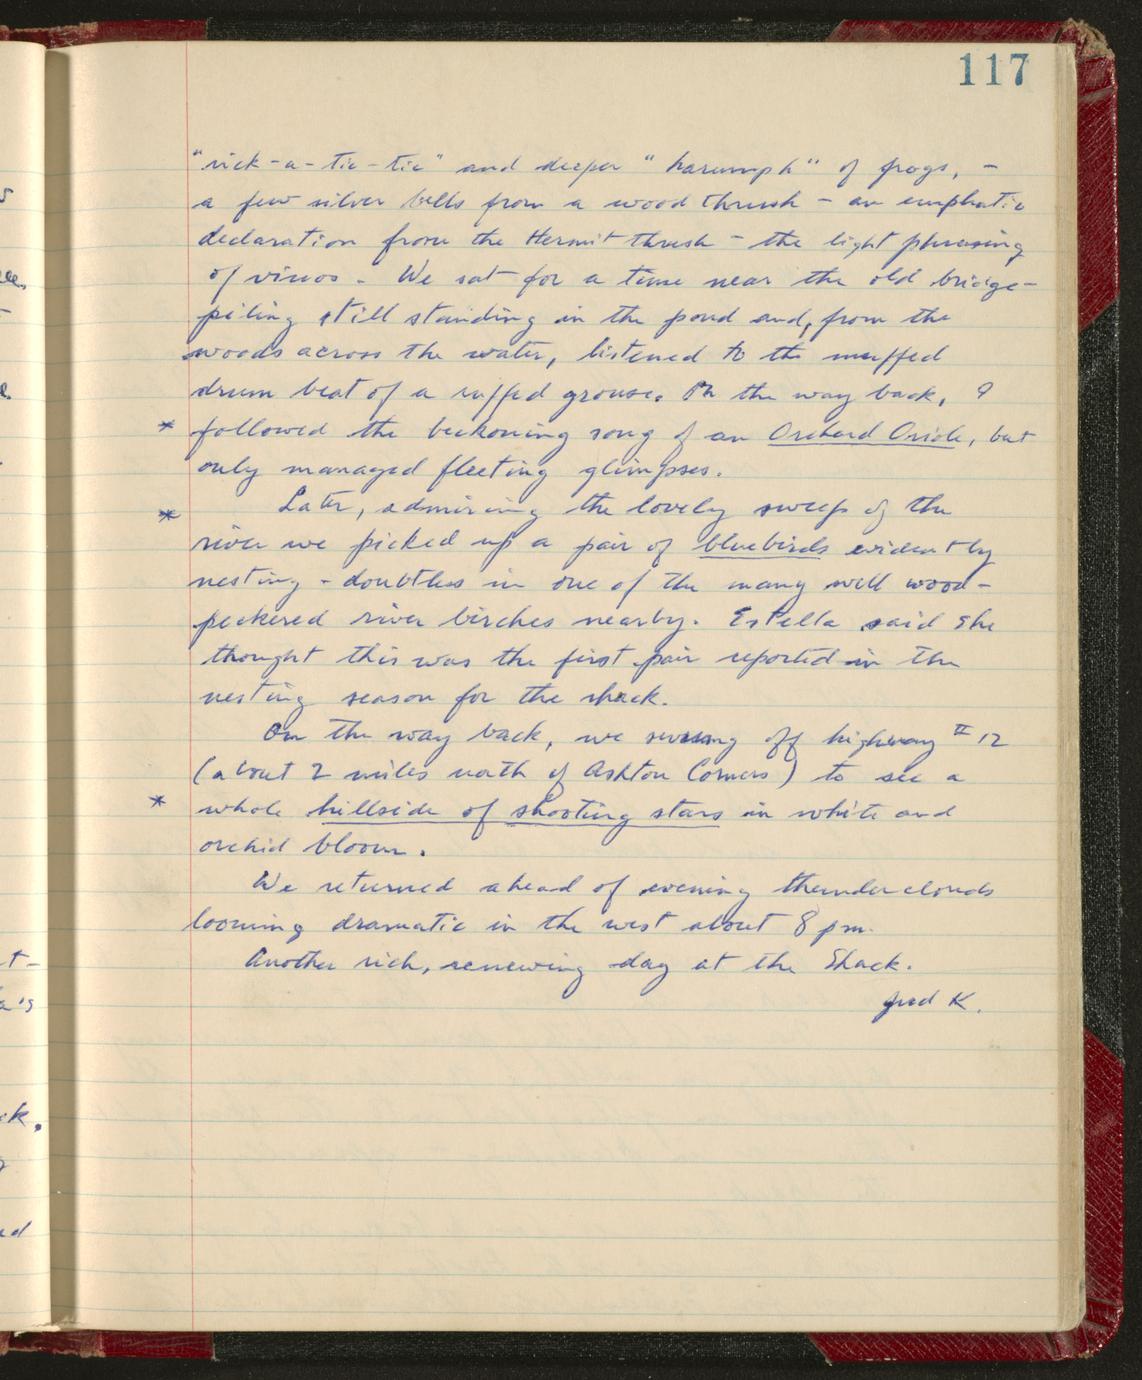 117
"rick-a-tic-tic" and deeper "harumph" of frogs, -
a few silver bells from a wood thrush - an emphatic
declaration from the Hermit thrush - the light phrasing
of vireos - We sat for a time near the old bridge-
piling still standing in the pond and, from the
woods across the water, listened to the muffed
drum beat of a ruffed grouse. On the way back, I
* followed the beckoning song of an Orchard Oriole, but
only managed fleeting glimpses.
* Later, admiring the lovely sweep of the
river we picked up a pair of bluebirds evidently
nesting - doubtless in one of the many well wood-
peckered river birches nearby. Estella said she
thought this was the first pair reported in the
nesting season for the shack.
On the way back, we swung off highway # 12
(about 2 miles north of Ashton Corners) to see a
* whole hillside of shooting stars in white and
orchid bloom.
We returned ahead of evening thunderclouds
looming dramatic in the west about 8 pm.
Another rich, renewing day at the Shack.
K.